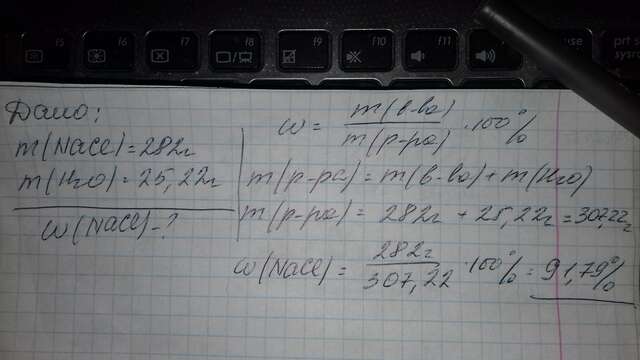 f5 f6 f7 f8 f9 f10 f11 prt s
Дано:
m(NaCl)=282г
m(H₂O)=25,22г
ω(NaCl)-?
ω = m(в-ва) / m(р-ра) · 100%
m(р-ра) = m(в-ва) + m(H₂O)
m(р-ра) = 282г + 25,22г = 307,22г
ω(NaCl) = 282г / 307,22 · 100% = 91,79%